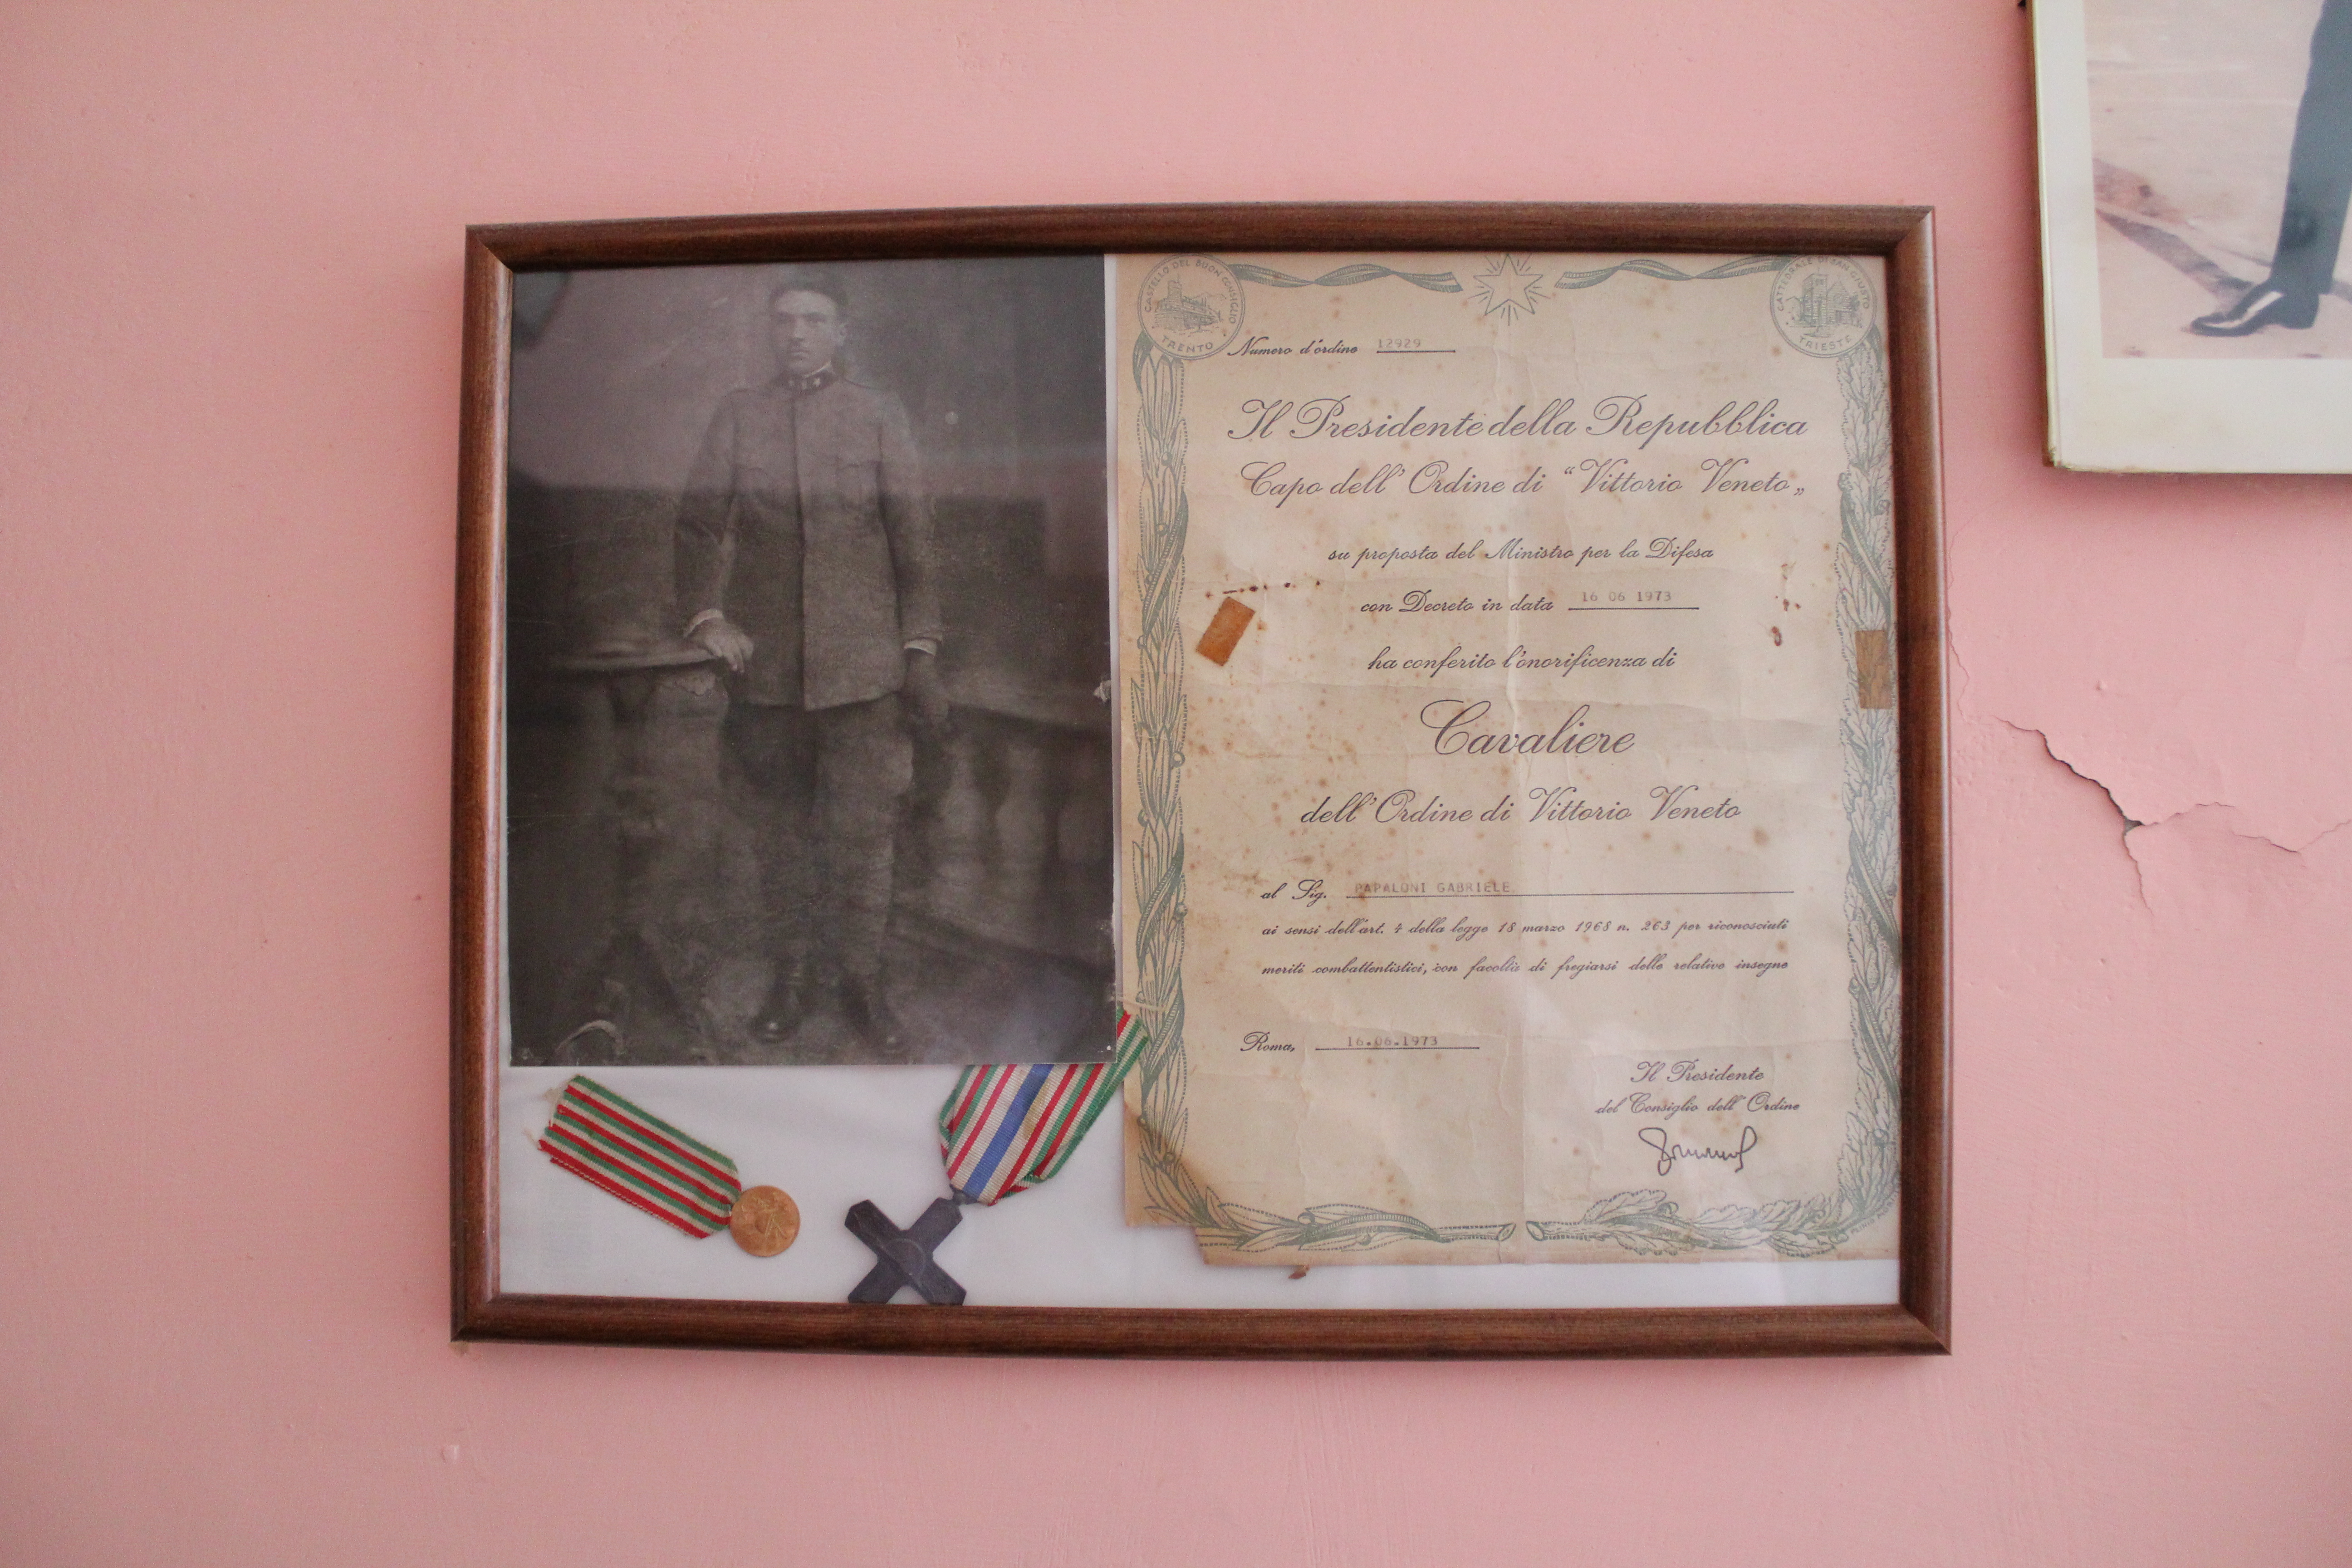 CASTELLO DEL BUON CONSIGLIO
TRENTO
CATTEDRALE DI SAN GIUSTO
TRIESTE
Numero d'ordine 12929
Il Presidente della Repubblica
Capo dell' Ordine di “Vittorio Veneto„
su proposta del Ministro per la Difesa
con Decreto in data 16 06 1973
ha conferito l'onorificenza di
Cavaliere
dell' Ordine di Vittorio Veneto
al Sig. PAPALONI GABRIELE
ai sensi dell'art. 4 della legge 18 marzo 1968 n. 263 per riconosciuti
meriti combattentistici, con facoltà di fregiarsi delle relative insegne
Roma, 16.06.1973
Il Presidente
del Consiglio dell' Ordine